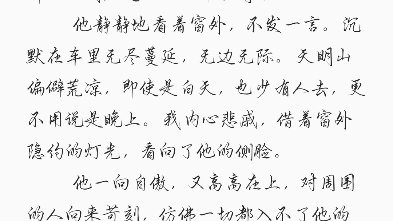 他静静地看着窗外，不发一言。沉
默在车里无尽蔓延，无边无际。天明山
偏僻荒凉，即使是白天，也少有人去，更
不用说是晚上。我内心悲戚，借着窗外
隐约的灯光，看向了他的侧脸。
他一向自傲，又高高在上，对周围
的人向来苛刻，仿佛一切都入不了他的